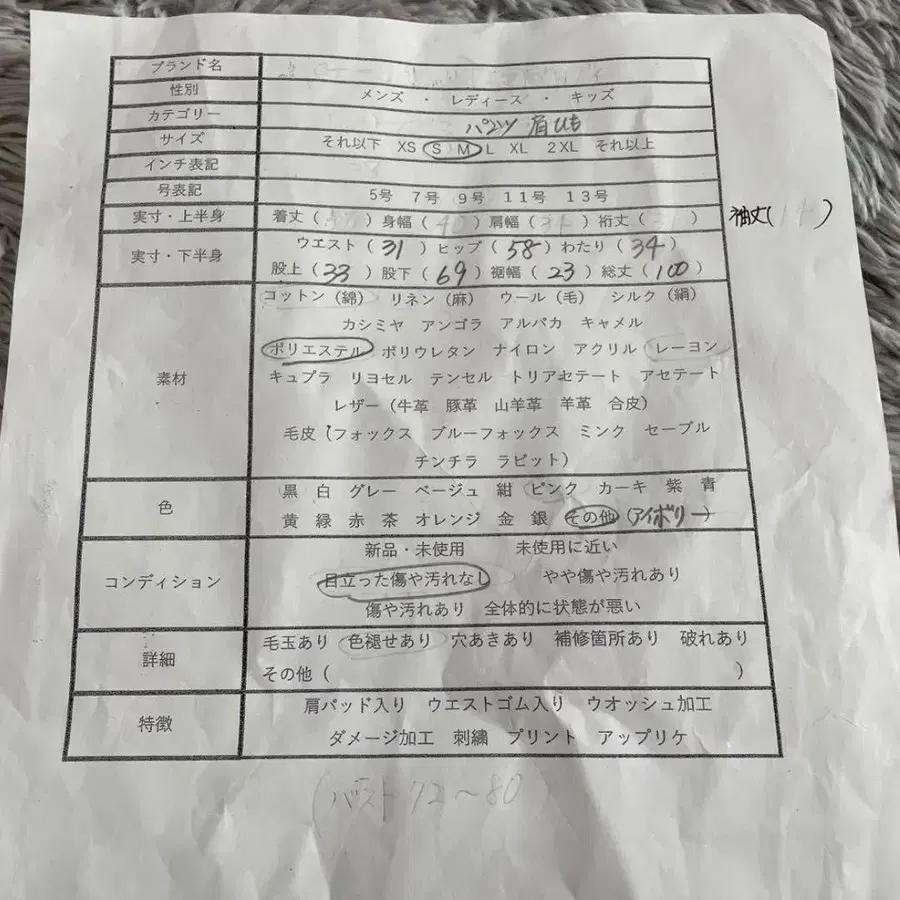 ブランド名
性別 メンズ ・ レディース ・ キッズ
カテゴリー パンツ 肩ひも
サイズ それ以下 XS S M L XL 2XL それ以上
インチ表記
号表記 5号 7号 9号 11号 13号
実寸・上半身 着丈 ( ) 身幅 ( 40 ) 肩幅 ( ) 裄丈 ( ) 袖丈 ( )
実寸・下半身 ウエスト ( 31 ) ヒップ ( 58 ) わたり ( 34 )
股上 ( 33 ) 股下 ( 69 ) 裾幅 ( 23 ) 総丈 ( 100 )
素材 コットン (綿) リネン (麻) ウール (毛) シルク (絹)
カシミヤ アンゴラ アルパカ キャメル
ポリエステル ポリウレタン ナイロン アクリル レーヨン
キュプラ リヨセル テンセル トリアセテート アセテート
レザー (牛革 豚革 山羊革 羊革 合皮)
毛皮 (フォックス ブルーフォックス ミンク セーブル
チンチラ ラビット)
色 黒 白 グレー ベージュ 紺 ピンク カーキ 紫 青
黄 緑 赤 茶 オレンジ 金 銀 その他 (アイボリー)
コンディション 新品・未使用 未使用に近い
目立った傷や汚れなし やや傷や汚れあり
傷や汚れあり 全体的に状態が悪い
詳細 毛玉あり 色褪せあり 穴あきあり 補修箇所あり 破れあり
その他 ( )
特徴 肩パッド入り ウエストゴム入り ウオッシュ加工
ダメージ加工 刺繍 プリント アップリケ
(バスト 72～80)